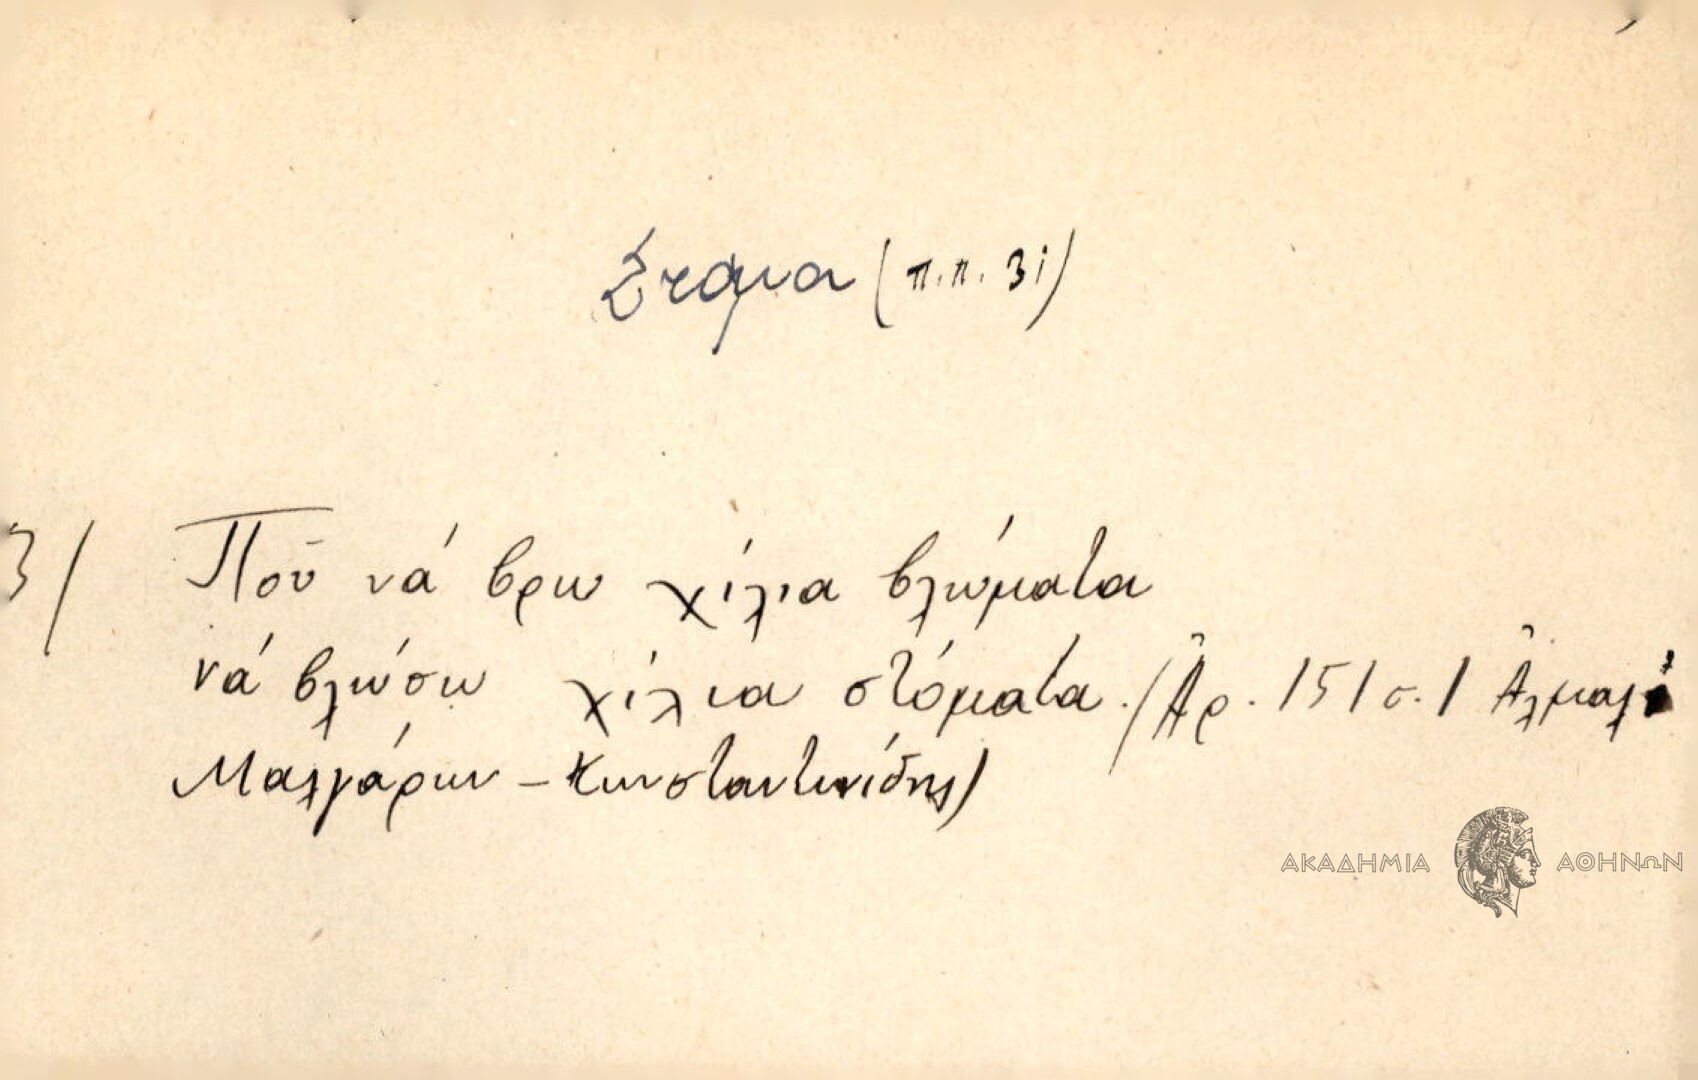 Στόμα (π.π. 31)
3/ Ποῦ νά βρω χίλια βλώματα
νά βλώσω χίλια στόματα. (Ἀρ. 151 σ. 1 Ἀλμαλῆ
Μαλγάρων - Κωνσταντινίδης)
ΑΚΑΔΗΜΙΑ ΑΘΗΝΩΝ